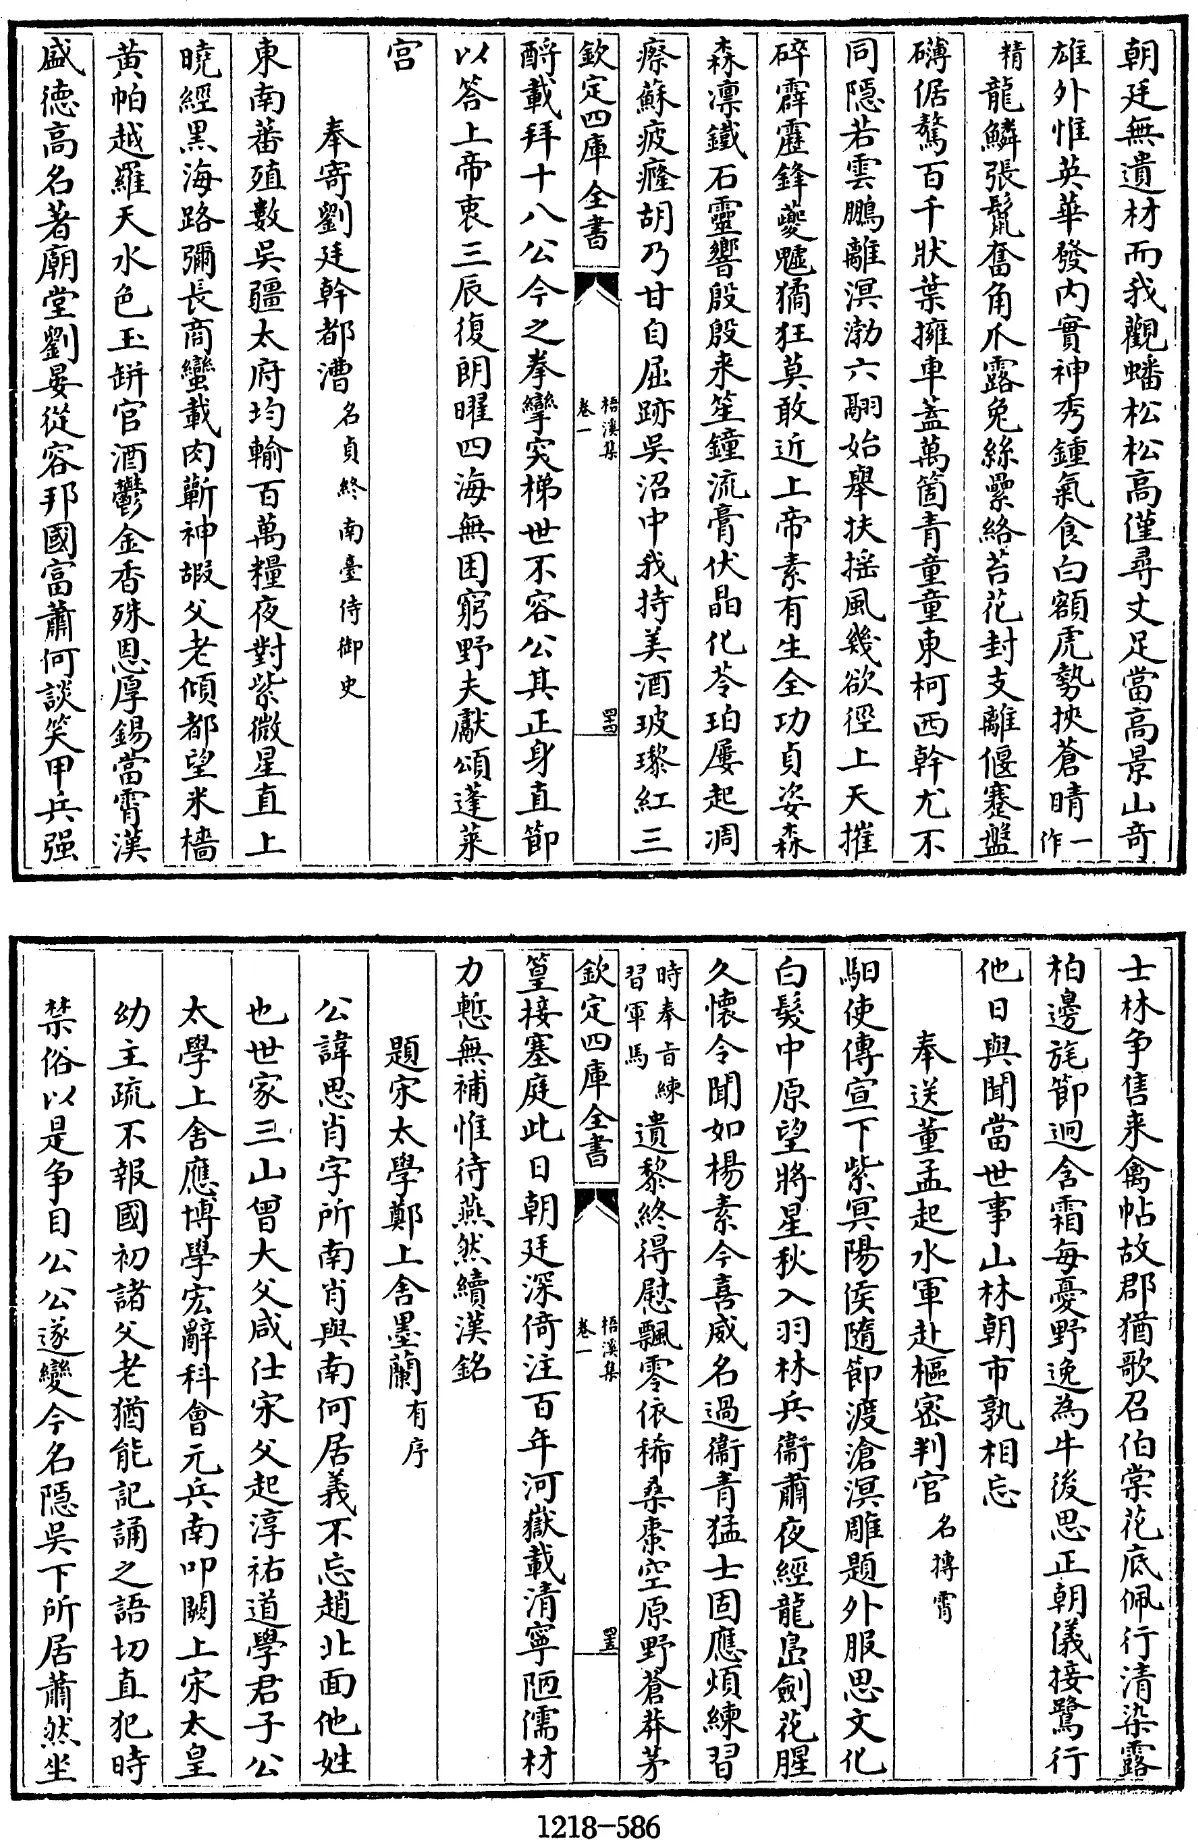 朝廷無遺材而我觀蟠松松高僅尋丈足當高景山奇
雄外惟英華發内實神秀鍾氣食白額虎勢挾蒼晴一作
精龍鱗張鬛奮角爪露兔絲纍絡苔花封支離偃蹇盤
礴倨驁百千狀葉擁車蓋萬箇青童童東柯西幹尤不
同隠若雲鵬離溟渤六翮始舉扶揺風幾欲徑上天摧
碎霹靂鋒夔魖獝狂莫敢近上帝素有生全功貞姿森
森凛鐵石靈響殷殷来笙鐘流膏伏晶化苓珀屢起凋
瘵蘇疲癃胡乃甘自屈跡吳沼中我持美酒玻瓈紅三
欽定四庫全書
梧溪集
卷一
四十四
酹載拜十八公今之拳攣突梯世不容公其正身直節
以答上帝衷三辰復朗曜四海無困窮野夫獻頌蓬萊
宫
奉寄劉廷幹都漕名貞終南臺侍御史
東南蕃殖數吳疆太府均輸百萬糧夜對紫微星直上
曉經黒海路彌長商蠻載肉蘄神嘏父老傾都望米檣
黄帕越羅天水色玉缾官酒鬱金香殊恩厚錫當霄漢
盛徳高名著廟堂劉晏從容邦國富蕭何談笑甲兵强
士林争售来禽帖故郡猶歌召伯棠花底佩行清染露
柏邊旄節迥含霜每憂野逸為牛後思正朝儀接鷺行
他日與聞當世事山林朝市孰相忘
奉送董孟起水軍赴樞密判官名摶霄
馹使傳宣下紫冥陽侯隨節渡滄溟雕題外服思文化
白髮中原望將星秋入羽林兵衛肅夜經龍島劍花腥
久懷令聞如楊素今喜威名過衛青猛士固應煩練習
時奉㫖練習軍馬遺黎終得慰飄零依稀桑棗空原野蒼莽茅
欽定四庫全書
梧溪集
卷一
四十五
篁接塞庭此日朝廷深倚注百年河嶽載清寧陋儒材
力慙無補惟待燕然續漢銘
題宋太學鄭上舍墨蘭有序
公諱思肖字所南肖與南何居義不忘趙北面他姓
也世家三山曾大父咸仕宋父起淳祐道學君子公
太學上舍應博學宏辭科會元兵南叩闕上宋太皇
幼主疏不報國初諸父老猶能記誦之語切直犯時
禁俗以是争目公公遂變今名隠吳下所居蕭然坐
1218-586